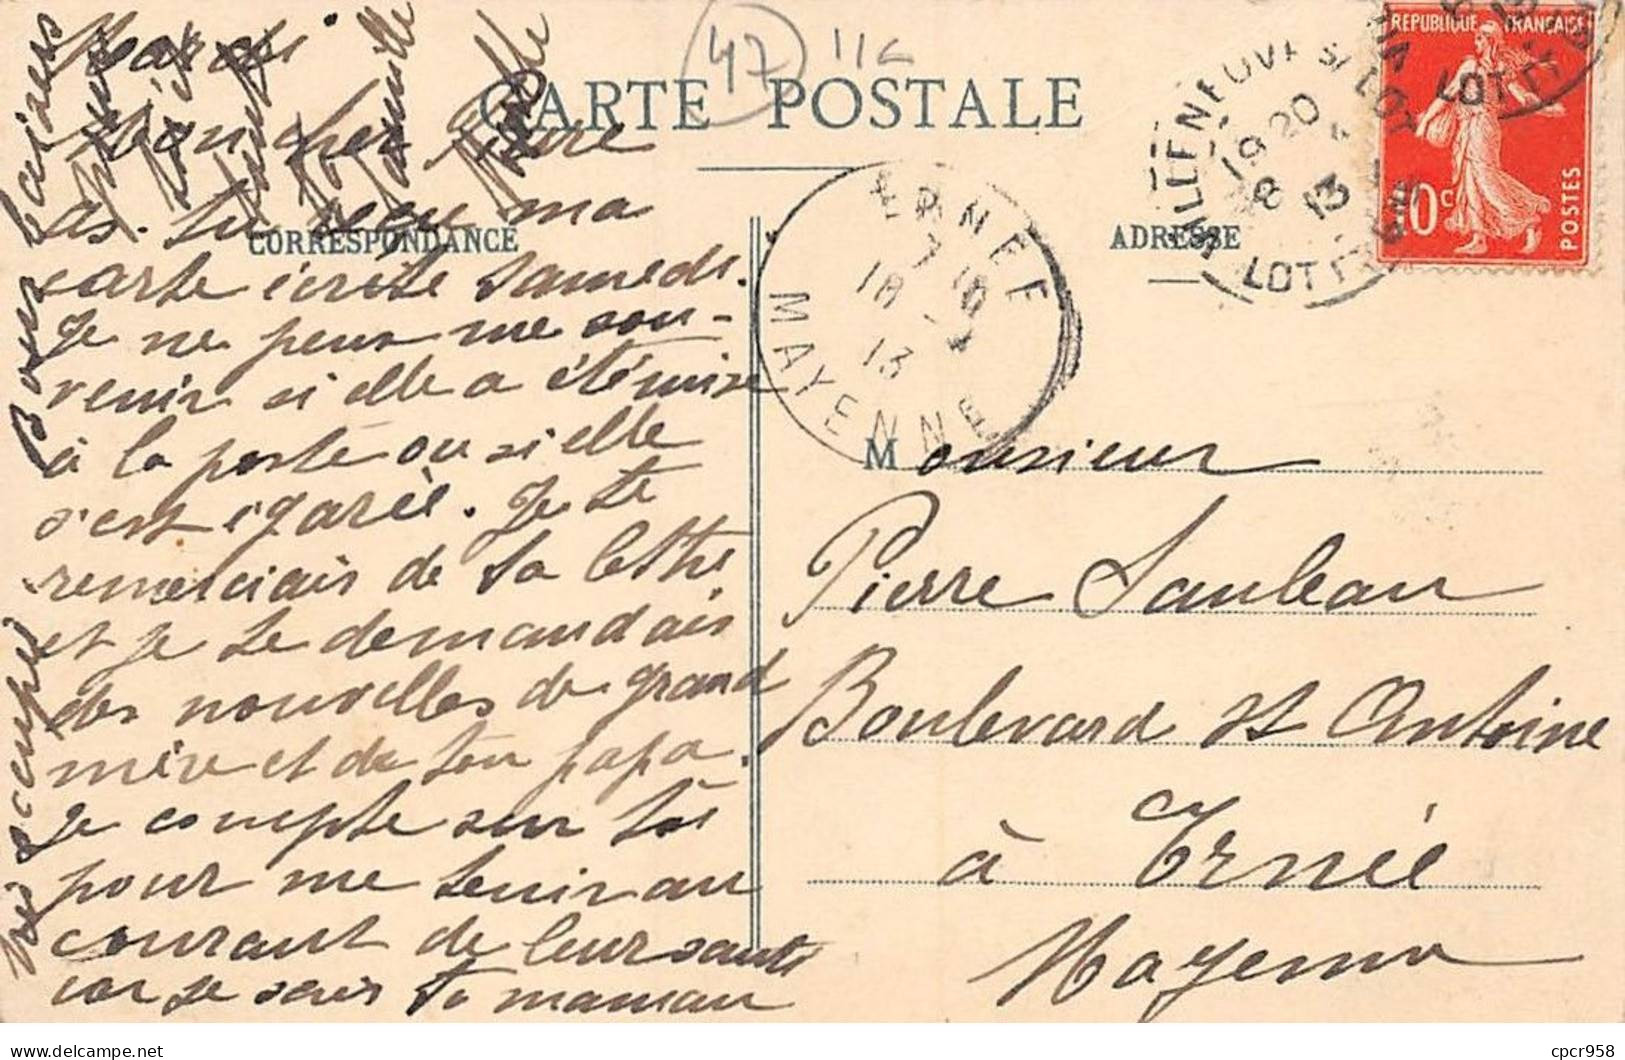 47 116
CARTE POSTALE
CORRESPONDANCE
ADRESSE
REPUBLIQUE FRANÇAISE
10c
POSTES
VILLENEUVE S/ LOT
19 20
8
13
LOT ET
LOT ET
ERNEE
7 10
18 - 4
13
MAYENNE
Mardi
Mon cher Pierre
as-tu reçu ma
carte écrite samedi.
Je ne peux me sou-
venir si elle a été mise
à la poste ou si elle
s'est égarée. Je te
remerciais de ta lettre
et je te demandais
des nouvelles de grand
mère et de ton papa.
Je compte sur toi
pour me tenir au
courant de leur santé
car je sais ta maman
très occupée
Bons baisers
famille
Monsieur
Pierre Sauleau
Boulevard St Antoine
à Ernée
Mayenne
cpcr958